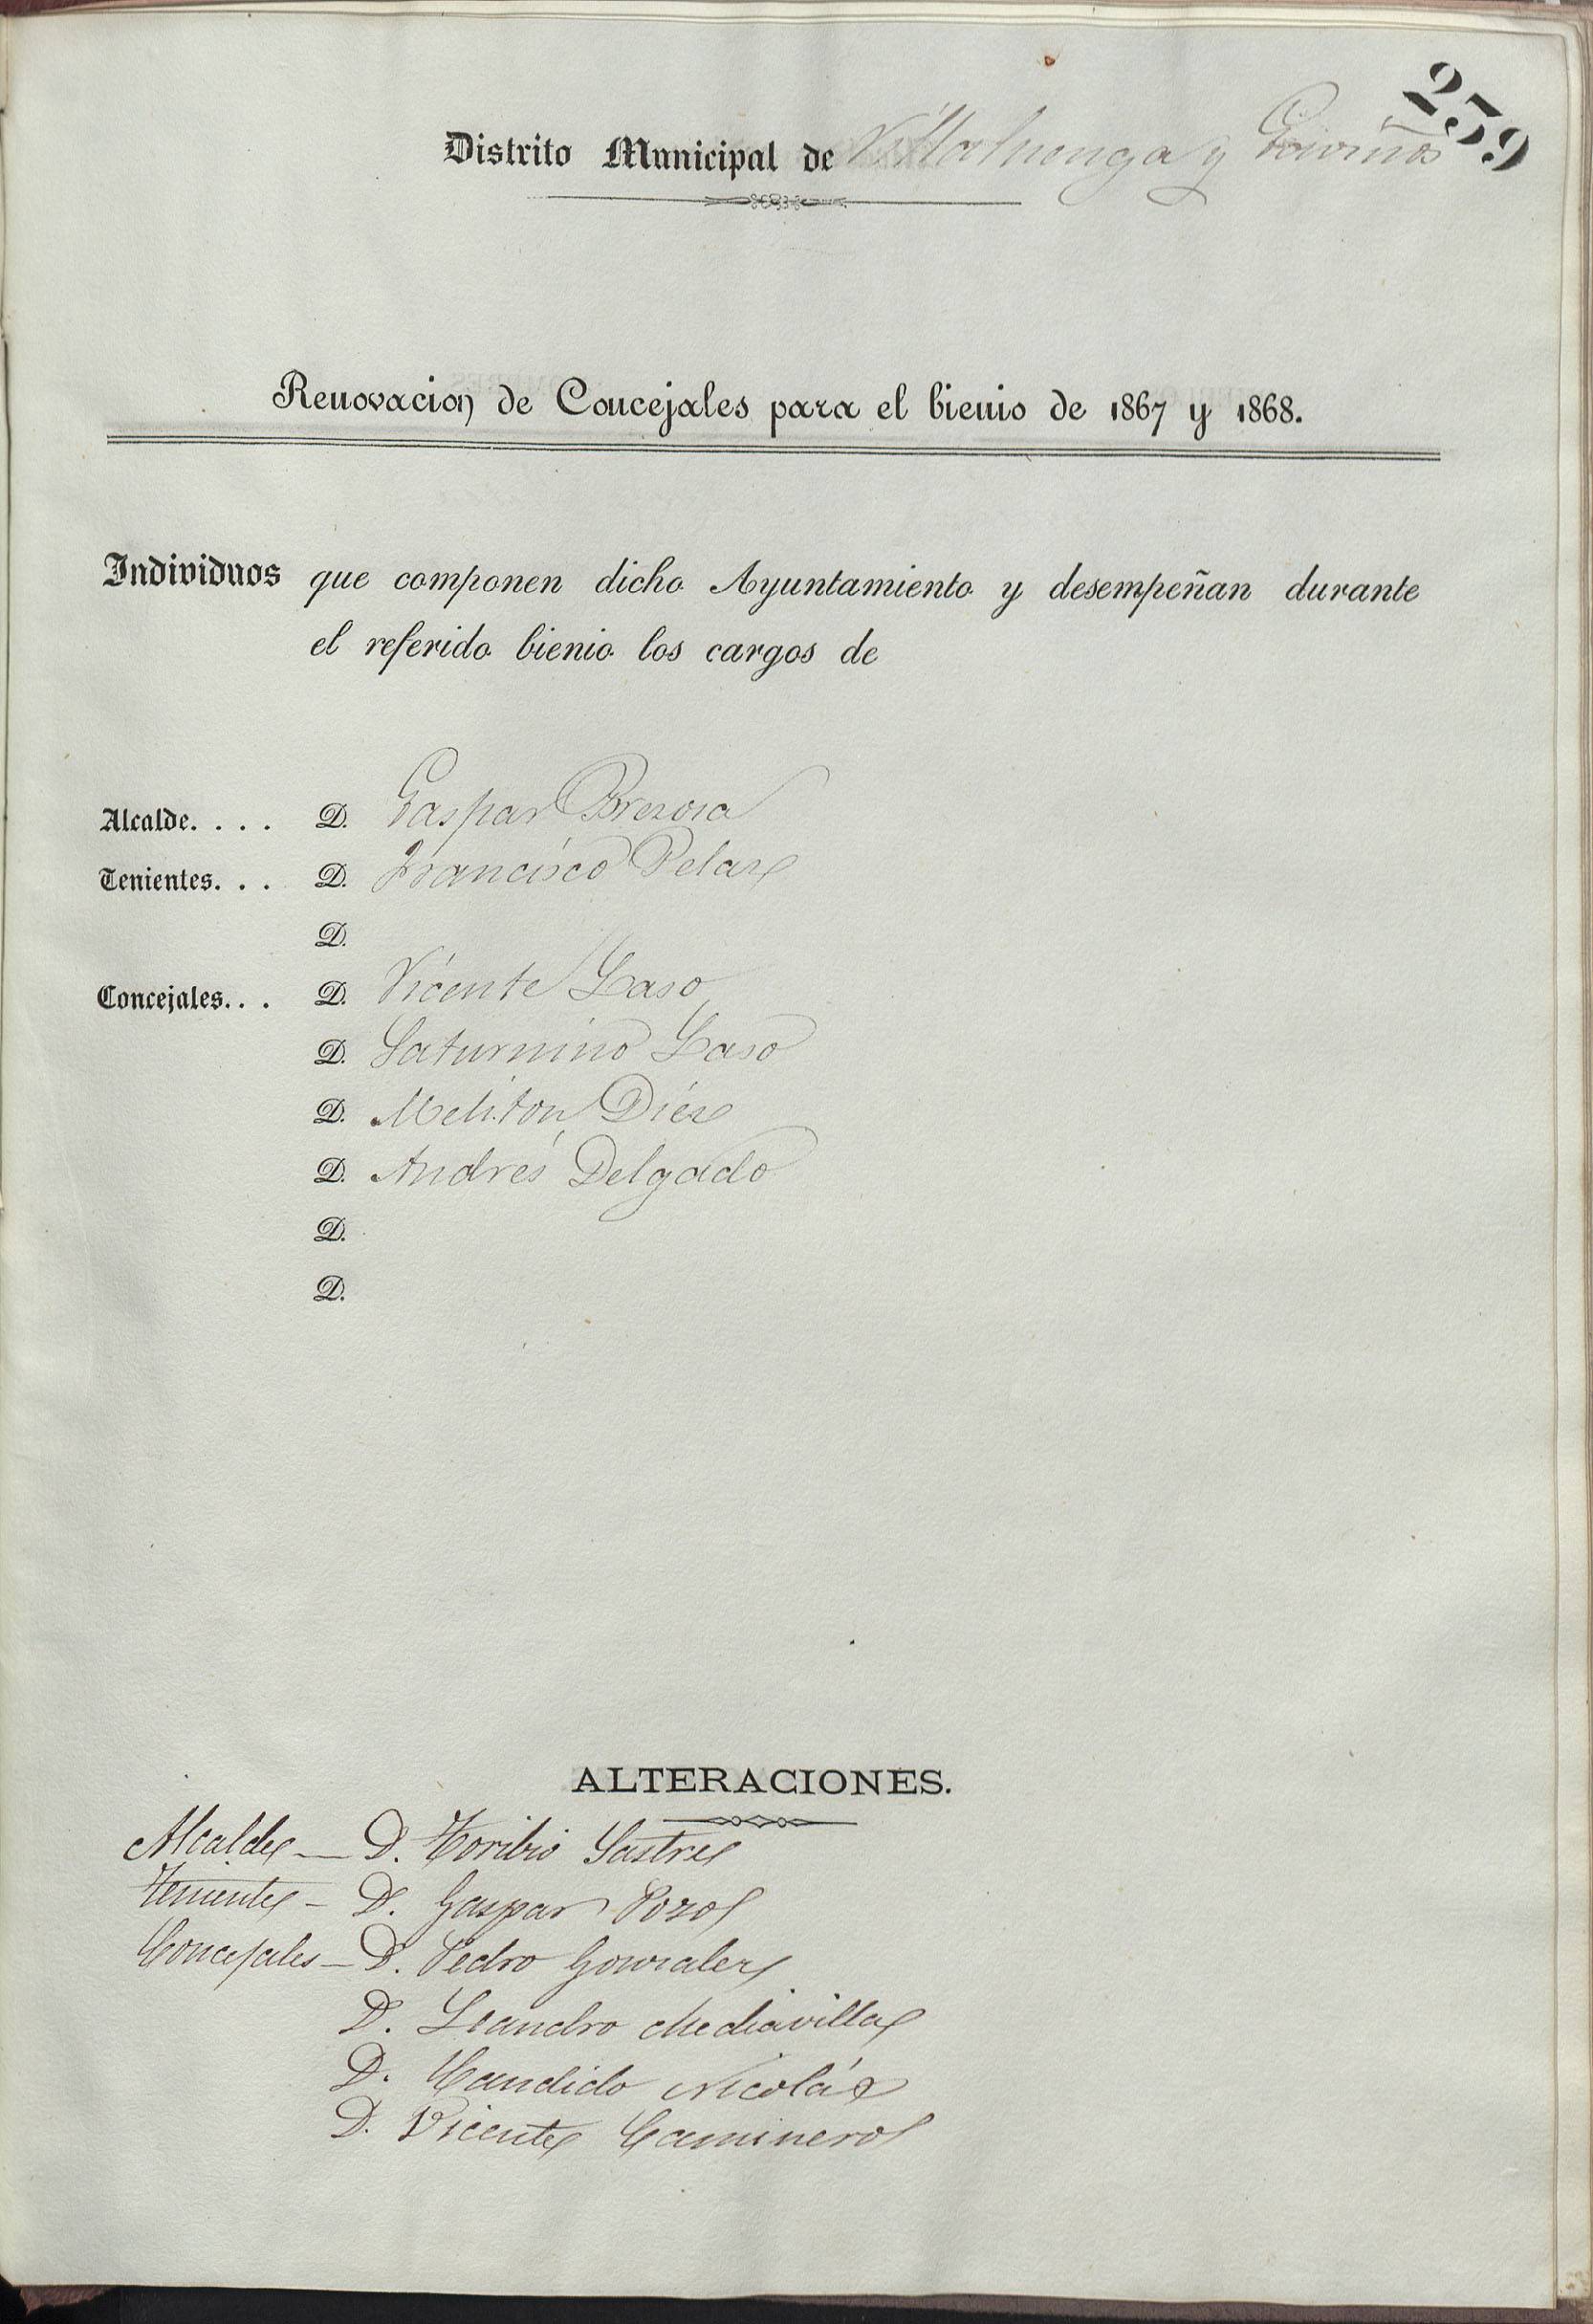 259
Distrito Municipal de Villaluenga y Gaviños
Renovacion de Concejales para el bienio de 1867 y 1868.
Individuos que componen dicho Ayuntamiento y desempeñan durante
el referido bienio los cargos de
Alcalde. . . . D. Gaspar
Tenientes. . . D. Francisco Pelaz
D.
Concejales. . . D. Vicente Laso
D. Saturnino Laso
D. Meliton Diez
D. Andrés Delgado
D.
D.
ALTERACIONES.
Alcalde — D. Toribio Sastre
Teniente – D. Gaspar Pozo
Concejales – D. Pedro Gonzalez
D. Leandro Mediavilla
D. Candido Nicolás
D. Vicente Caminero